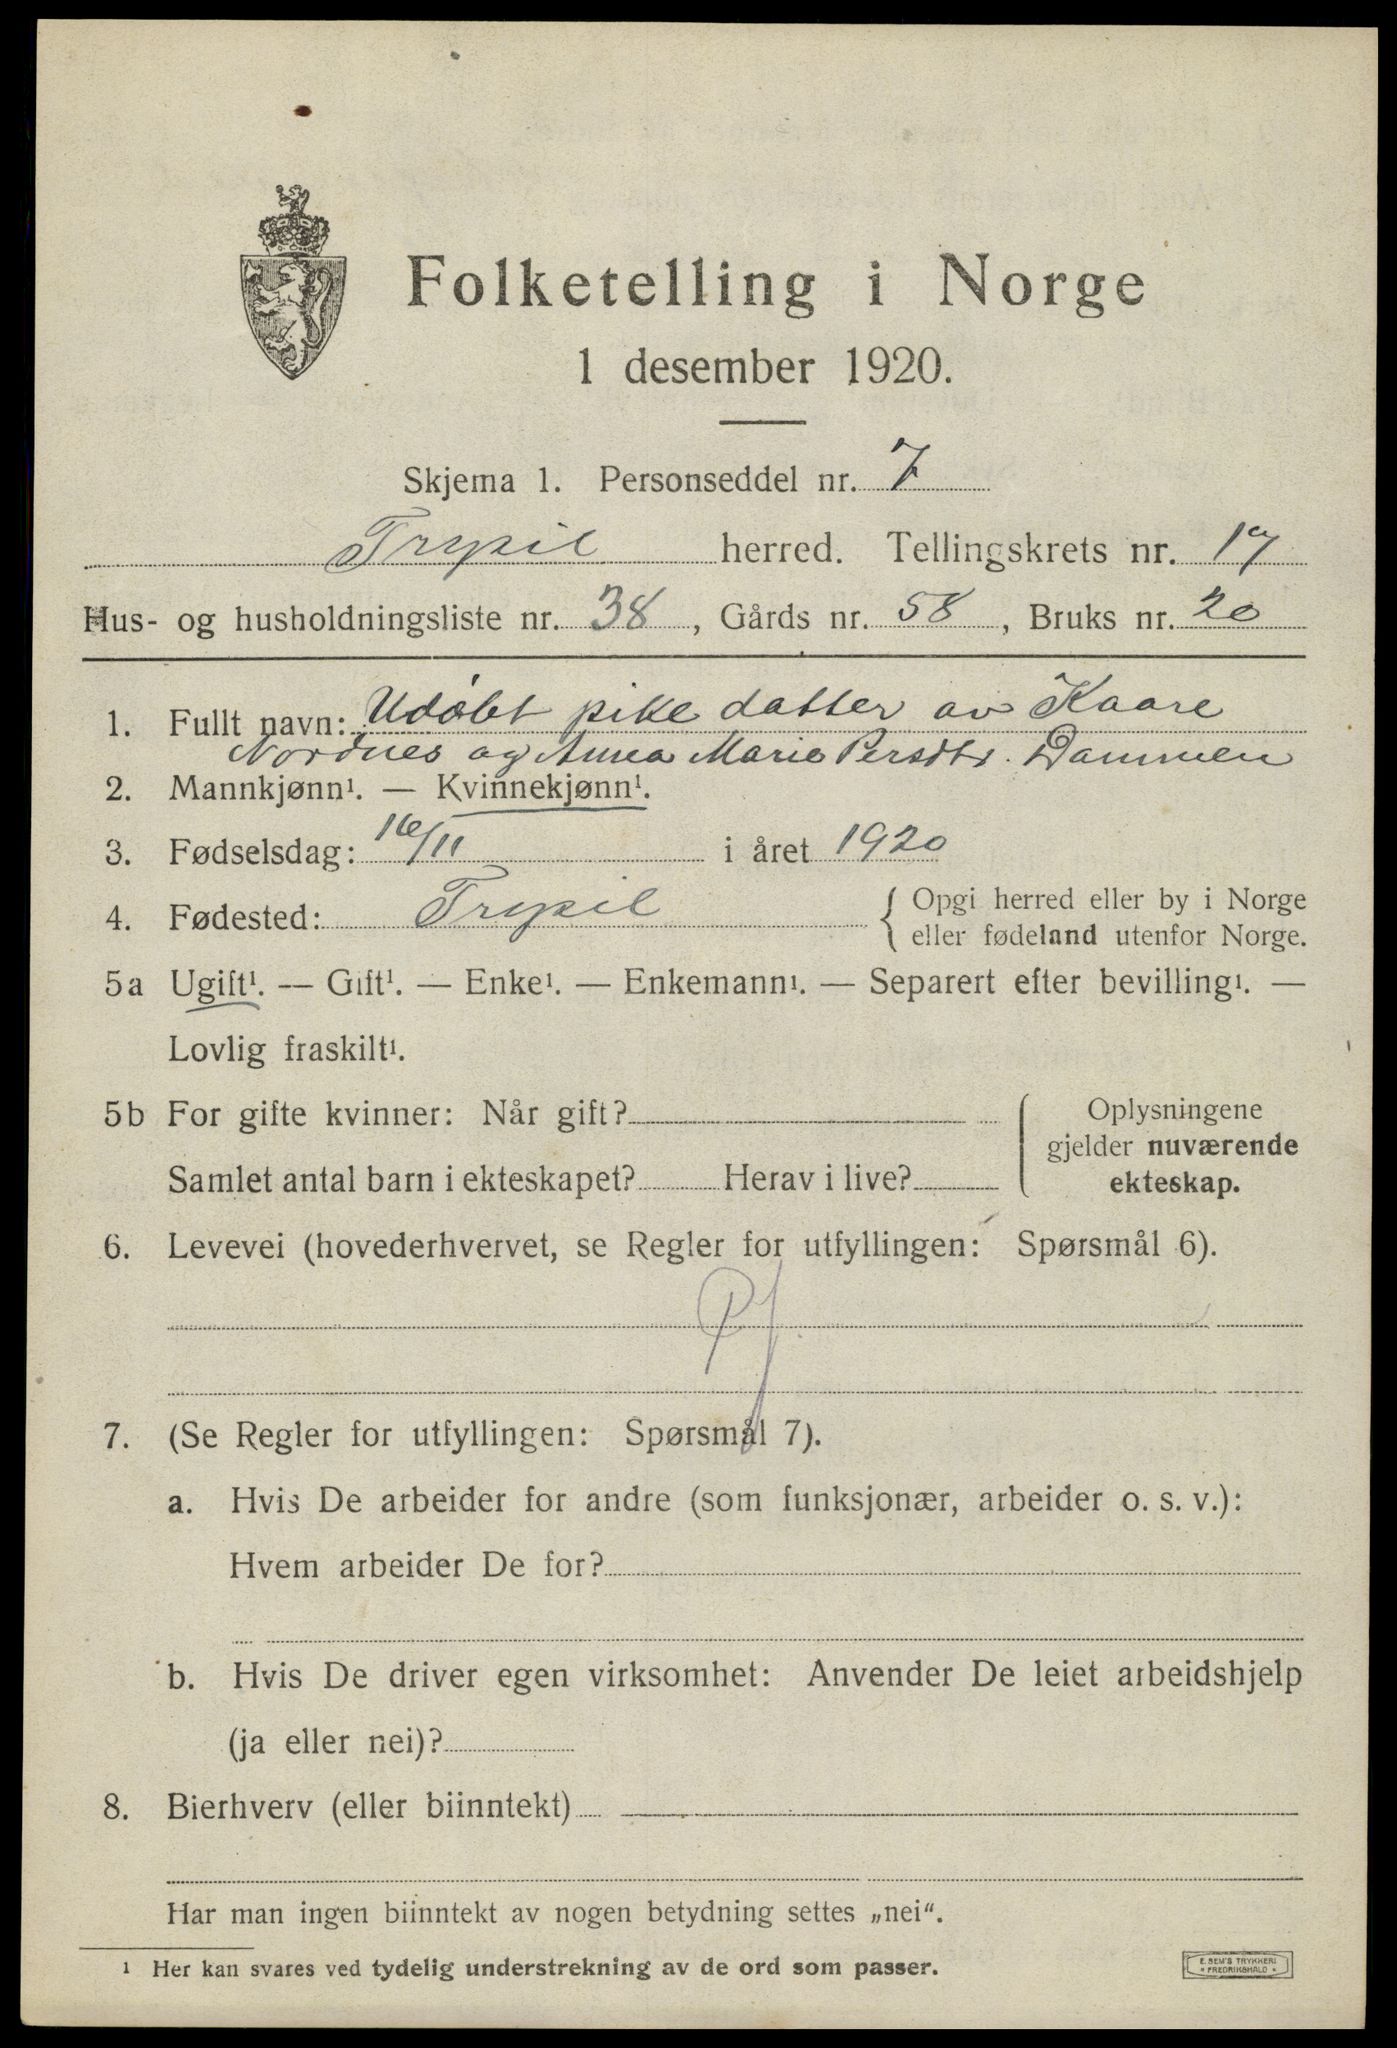 Folketelling i Norge
1 desember 1920.
Skjema 1. Personseddel nr. 7
Trysil herred. Tellingskrets nr. 17
Hus- og husholdningsliste nr. 38, Gårds nr. 58, Bruks nr. 20
1. Fullt navn: Udöbt pike datter av Kaare
Nordnes og Anna Marie Persdtr. Dammen
2. Mannkjønn¹. — Kvinnekjønn¹.
3. Fødselsdag: 16/11 i året 1920
4. Fødested: Trysil { Opgi herred eller by i Norge
eller fødeland utenfor Norge.
5a Ugift¹. — Gift¹. — Enke¹. — Enkemann¹. — Separert efter bevilling¹. —
Lovlig fraskilt¹.
5b For gifte kvinner: Når gift? { Oplysningene
gjelder nuværende
Samlet antal barn i ekteskapet? Herav i live? ekteskap.
6. Levevei (hovederhvervet, se Regler for utfyllingen: Spørsmål 6).
7. (Se Regler for utfyllingen: Spørsmål 7).
a. Hvis De arbeider for andre (som funksjonær, arbeider o. s. v.):
Hvem arbeider De for?
b. Hvis De driver egen virksomhet: Anvender De leiet arbeidshjelp
(ja eller nei)?
8. Bierhverv (eller biinntekt)
Har man ingen biinntekt av nogen betydning settes „nei“.
¹ Her kan svares ved tydelig understrekning av de ord som passer.
E. SEM'S TRYKKERI
* FREDRIKSHALD *